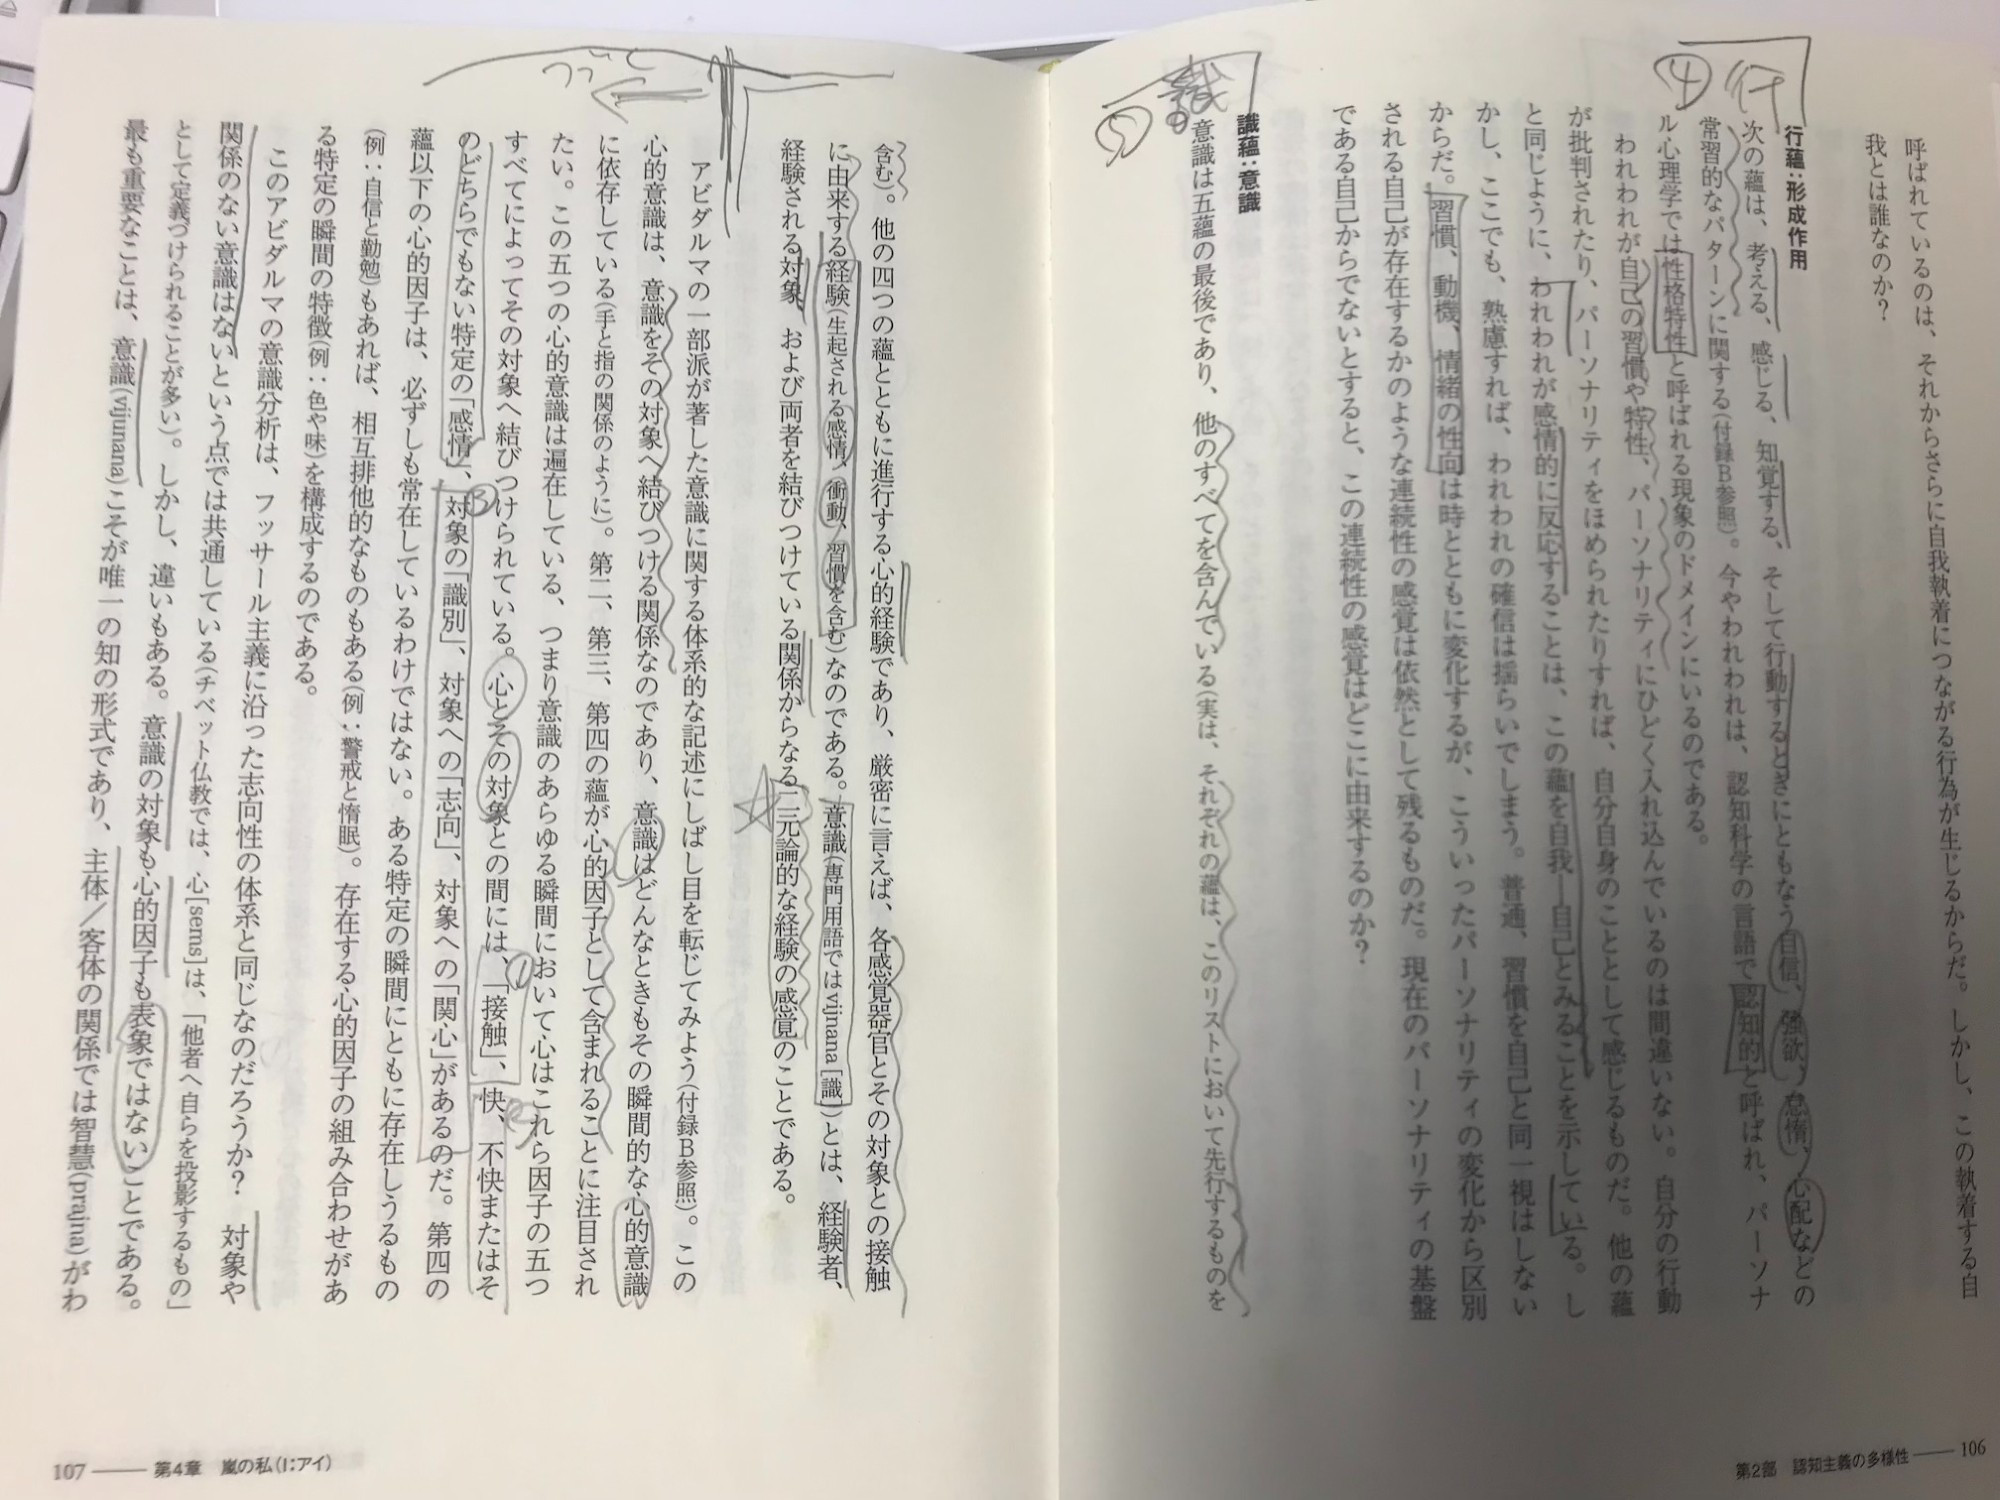 呼ばれているのは、それからさらに自我執着につながる行為が生じるからだ。しかし、この執着する自
我とは誰なのか？
④ 行
行蘊：形成作用
次の蘊は、考える、感じる、知覚する、そして行動するときにともなう自信、強欲、怠惰、心配などの
常習的なパターンに関する（付録B参照）。今やわれわれは、認知科学の言語で認知的と呼ばれ、パーソナ
ル心理学では性格特性と呼ばれる現象のドメインにいるのである。
われわれが自己の習慣や特性、パーソナリティにひどく入れ込んでいるのは間違いない。自分の行動
が批判されたり、パーソナリティをほめられたりすれば、自分自身のこととして感じるものだ。他の蘊
と同じように、われわれが感情的に反応することは、この蘊を自我―自己とみることを示している。し
かし、ここでも、熟慮すれば、われわれの確信は揺らいでしまう。普通、習慣を自己と同一視はしない
からだ。習慣、動機、情緒の性向は時とともに変化するが、こういったパーソナリティの変化から区別
される自己が存在するかのような連続性の感覚は依然として残るものだ。現在のパーソナリティの基盤
である自己からでないとすると、この連続性の感覚はどこに由来するのか？
⑤ 識
識蘊：意識
意識は五蘊の最後であり、他のすべてを含んでいる（実は、それぞれの蘊は、このリストにおいて先行するものを
第2部　認知主義の多様性 ―― 106
含む）。他の四つの蘊とともに進行する心的経験であり、厳密に言えば、各感覚器官とその対象との接触
に由来する経験（生起される感情、衝動、習慣を含む）なのである。意識（専門用語ではvijnana［識］）とは、経験者、
経験される対象、および両者を結びつけている関係からなる二元論的な経験の感覚のことである。
アビダルマの一部派が著した意識に関する体系的な記述にしばし目を転じてみよう（付録B参照）。この
心的意識は、意識をその対象へ結びつける関係なのであり、意識はどんなときもその瞬間的な心的意識
に依存している（手と指の関係のように）。第二、第三、第四の蘊が心的因子として含まれることに注目され
たい。この五つの心的意識は遍在している、つまり意識のあらゆる瞬間において心はこれら因子の五つ
すべてによってその対象へ結びつけられている。心とその対象との間には、「接触」、快、不快またはそ
のどちらでもない特定の「感情」、対象の「識別」、対象への「志向」、対象への「関心」があるのだ。第四の
蘊以下の心的因子は、必ずしも常在しているわけではない。ある特定の瞬間にともに存在しうるもの
（例：自信と勤勉）もあれば、相互排他的なものもある（例：警戒と惰眠）。存在する心的因子の組み合わせがあ
る特定の瞬間の特徴（例：色や味）を構成するのである。
このアビダルマの意識分析は、フッサール主義に沿った志向性の体系と同じなのだろうか？　対象や
関係のない意識はないという点では共通している（チベット仏教では、心［sems］は、「他者へ自らを投影するもの」
として定義づけられることが多い）。しかし、違いもある。意識の対象も心的因子も表象ではないことである。
最も重要なことは、意識（vijunana）こそが唯一の知の形式であり、主体／客体の関係では智慧（prajna）がわ
107 ―― 第4章　嵐の私（I：アイ）